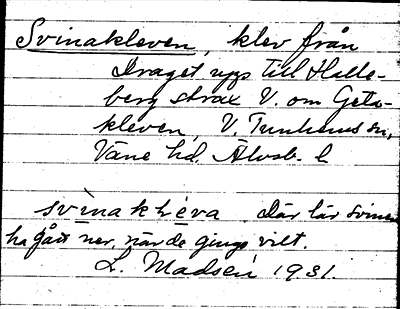 Svinakleven, klev från
Draget upp till Halle-
berg strax V. om Geta-
kleven, V. Tunhems sn,
Väne hd. Älvsb. l
svìnaklèva Där lär svinen
ha gått ner, när de gingo vilt.
L. Madsén 1931.